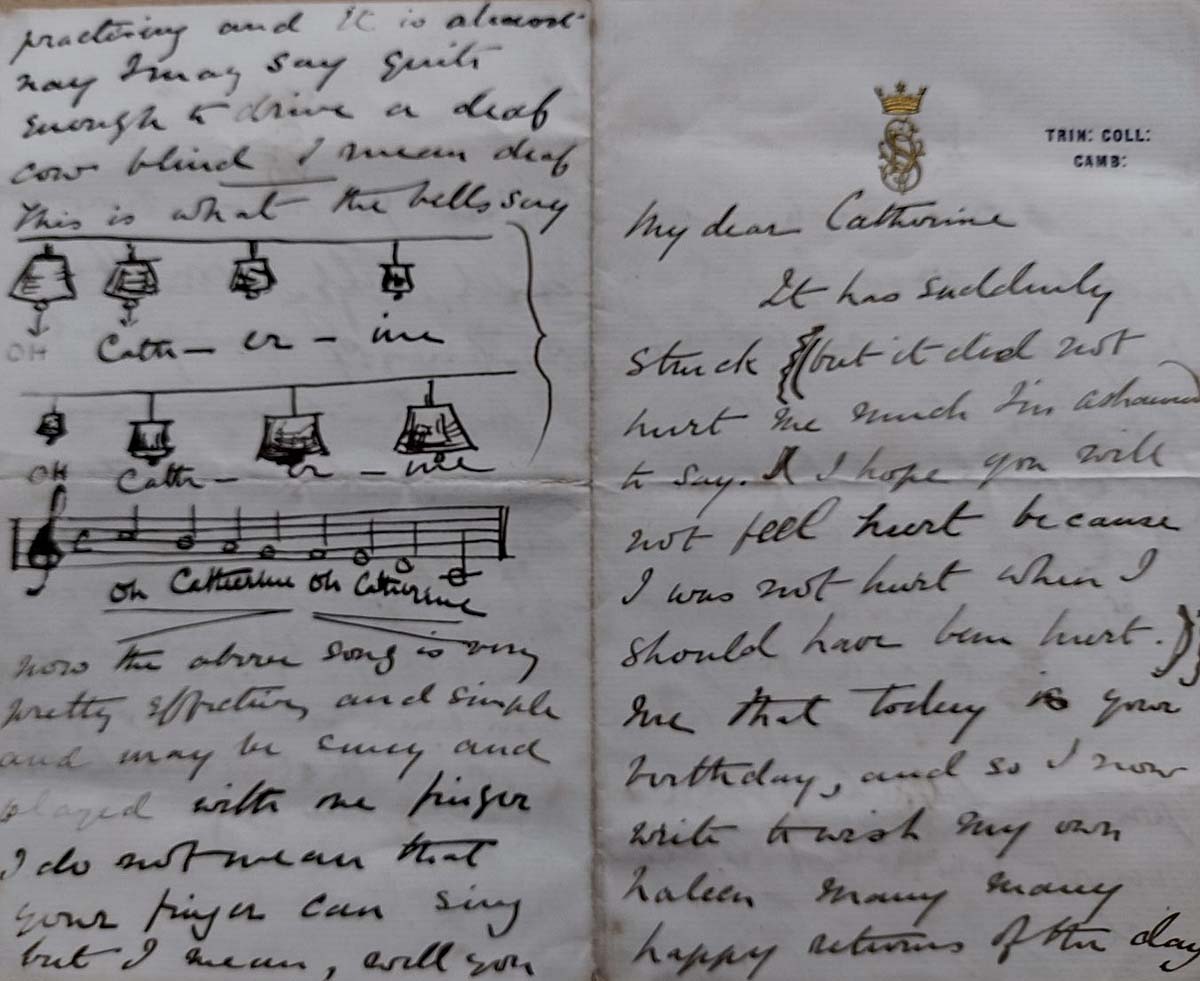 TRIN: COLL:
CAMB:
My dear Catherine
It has suddenly
struck {(but it did not
hurt me much I'm ashamed
to say. I hope you will
not feel hurt because
I was not hurt when I
should have been hurt.)}
me that today is your
birthday, and so I now
write to wish my own
many many
happy returns of the day
practising and it is almost
nay I may say quite
enough to drive a deaf
cow blind I mean deaf
This is what the bells say
OH Cath – er – ine
OH Cath – er – ine
Oh Catherine Oh Catherine
now the above song is very
pretty effective and simple
and may be sung and
played with one finger
I do not mean that
your finger can sing
but I mean, will you